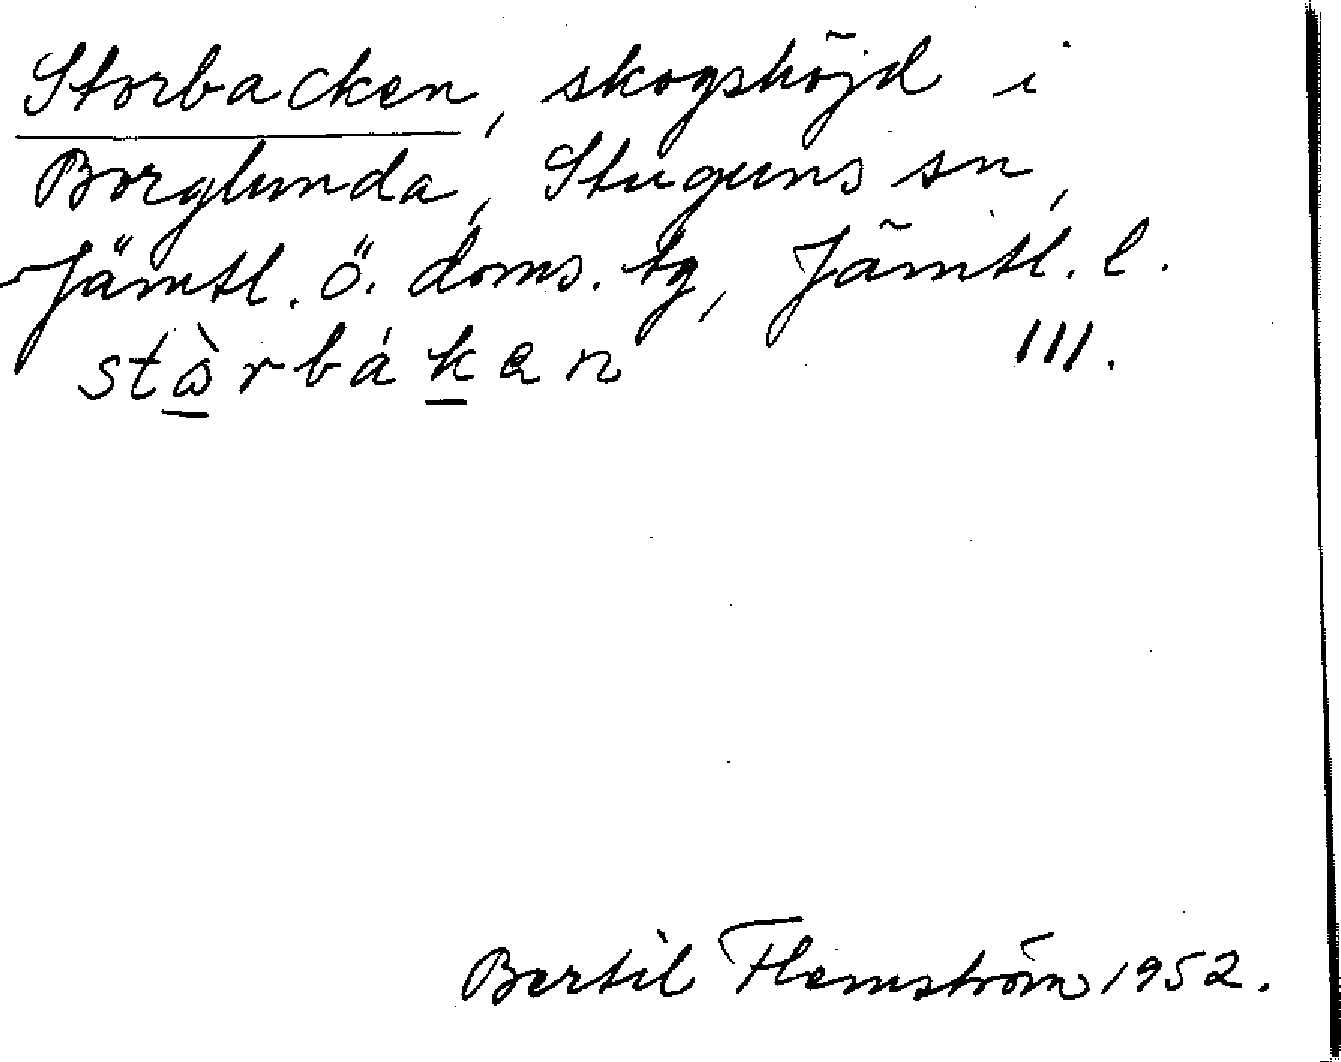 Storbacken, skogshöjd i
Borglunda, Stuguns sn,
Jämtl. Ö. doms. tg, Jämtl. l.
III.
Bertil Flemström 1952.